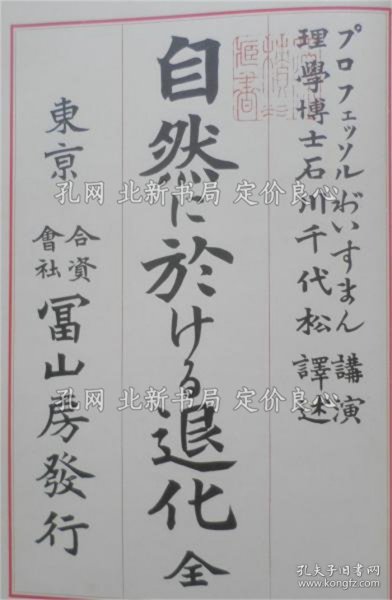 プロフェッソルゔいすまん講演
理學博士石川千代松譯述
自然に於ける退化 全
東京 合資會社 冨山房發行
孔网 北新书局 定价良心
孔网 北新书局 定价良心
孔网 北新书局 定价良心
孔夫子旧书网
www.kongfz.com